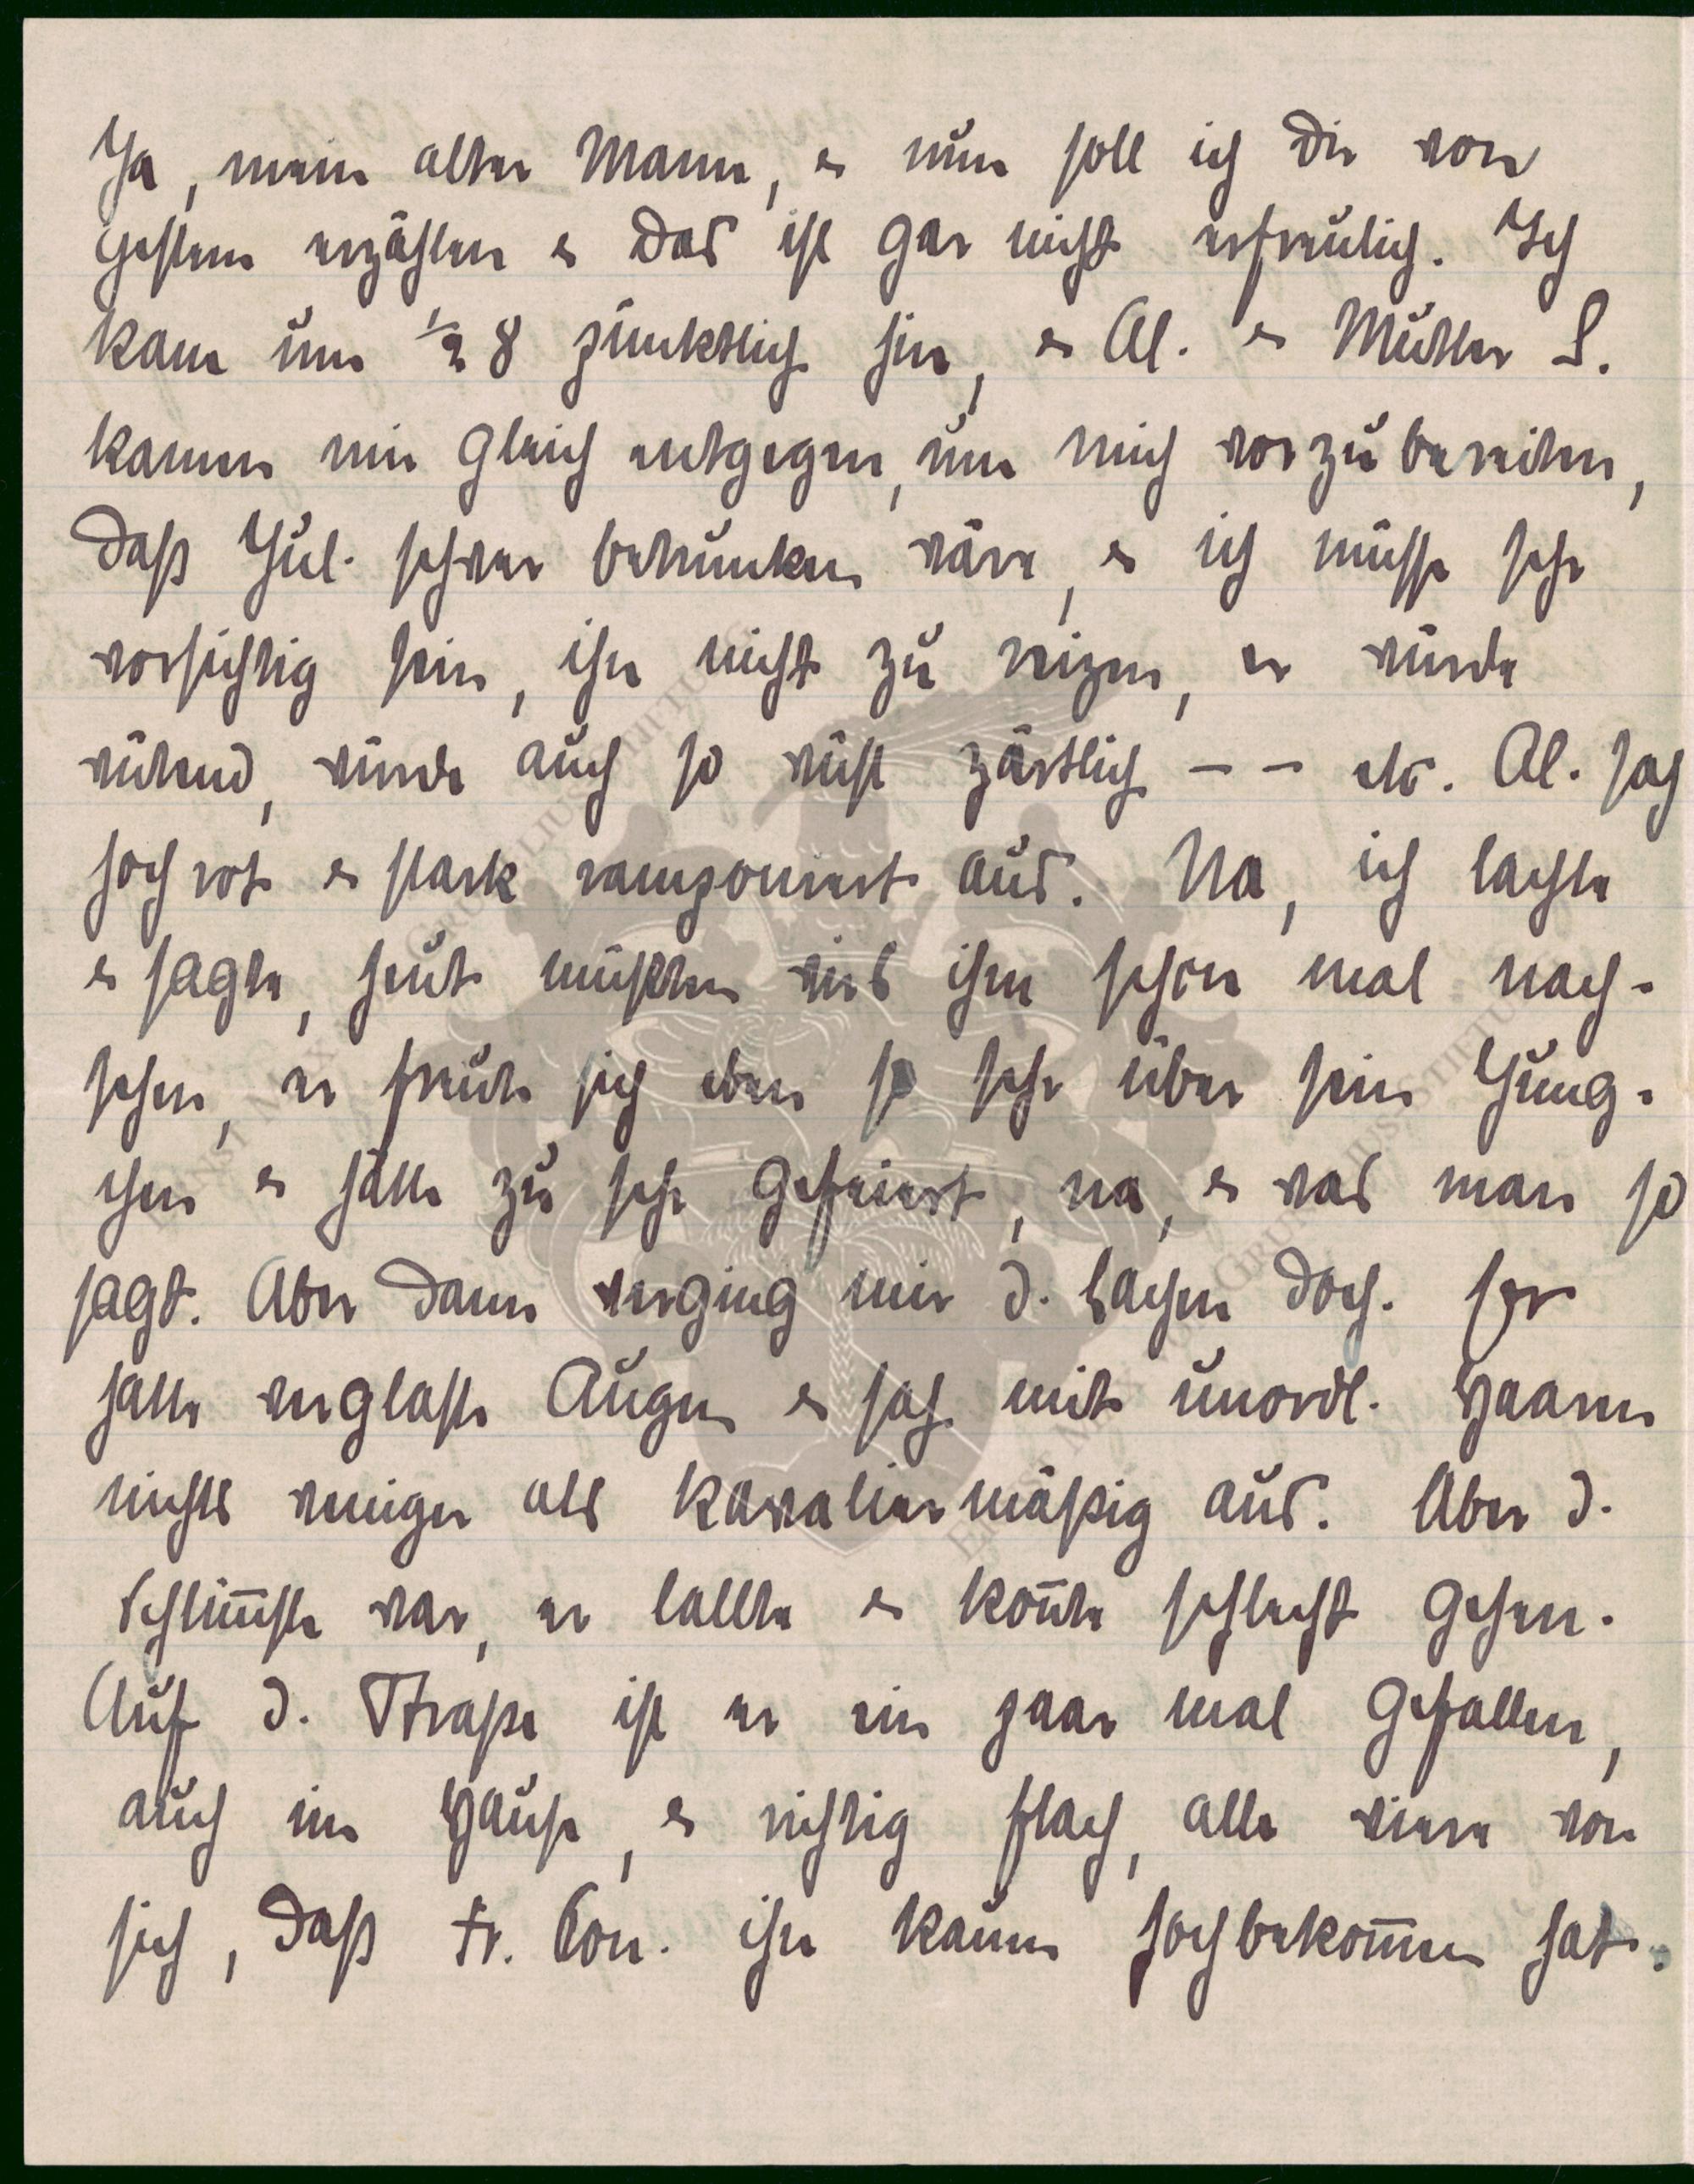 Ja, mein alter Mann, & nun soll ich Dir von
gestern erzählen & das ist gar nicht erfreulich. Ich
kam um ½ 8 pünktlich hin, & Al. & Mutter S.
kamen mir gleich entgegen, um mich vorzubereiten,
daß Jul. schwer betrunken wäre, & ich müsse sehr
vorsichtig sein, ihn nicht zu reizen, er würde
wütend, würde auch so wüst zärtlich – – etc. Al. sah
hochrot & stark ramponiert aus. Na, ich lachte
& sagte, heut müßten wirs ihm schon mal nach-
sehen, er freute sich eben so sehr über sein Jung-
chen & hätte zu sehr gefeiert, na, & was man so
sagt. Aber dann verging mir d. Lachen doch. Er
hatte verglaste Augen & sah mit unordl. Haaren
nichts weniger als kavaliermäßig aus. Aber d.
Schlim̅ste war, er lallte & kon̅te schlecht gehen.
Auf d. Straße ist er ein paar mal gefallen,
auch im Hause, & richtig flach, alle viere von
sich, daß Fr. Con. ihn kaum hochbekom̅en hat.